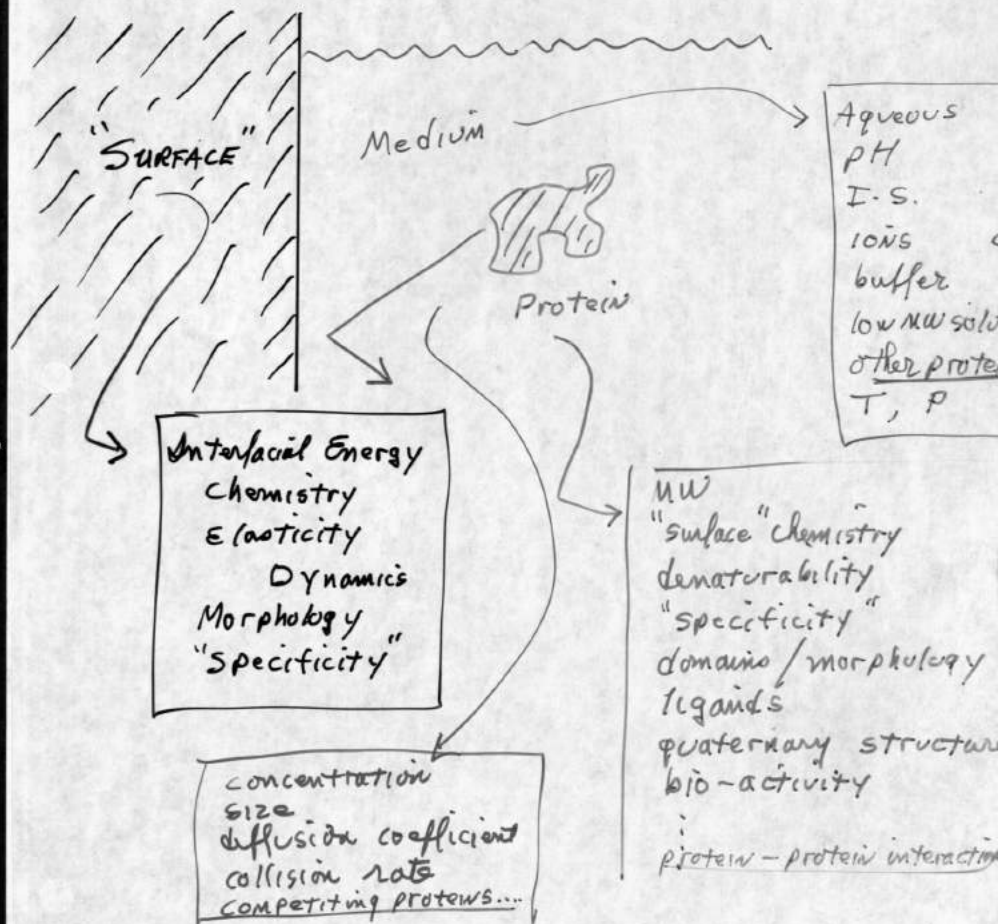 "SURFACE"
Medium
Protein
Aqueous
pH
I.S.
IONS
buffer
low MW solu
other prote
T, P
Interfacial Energy
Chemistry
Elasticity
Dynamics
Morphology
"Specificity"
MW
"surface" Chemistry
denaturability
"specificity"
domains/morphology
ligands
quaternary structure
bio-activity
⋮
protein-protein interaction
concentration
size
diffusion coefficient
collision rate
competiting proteins....